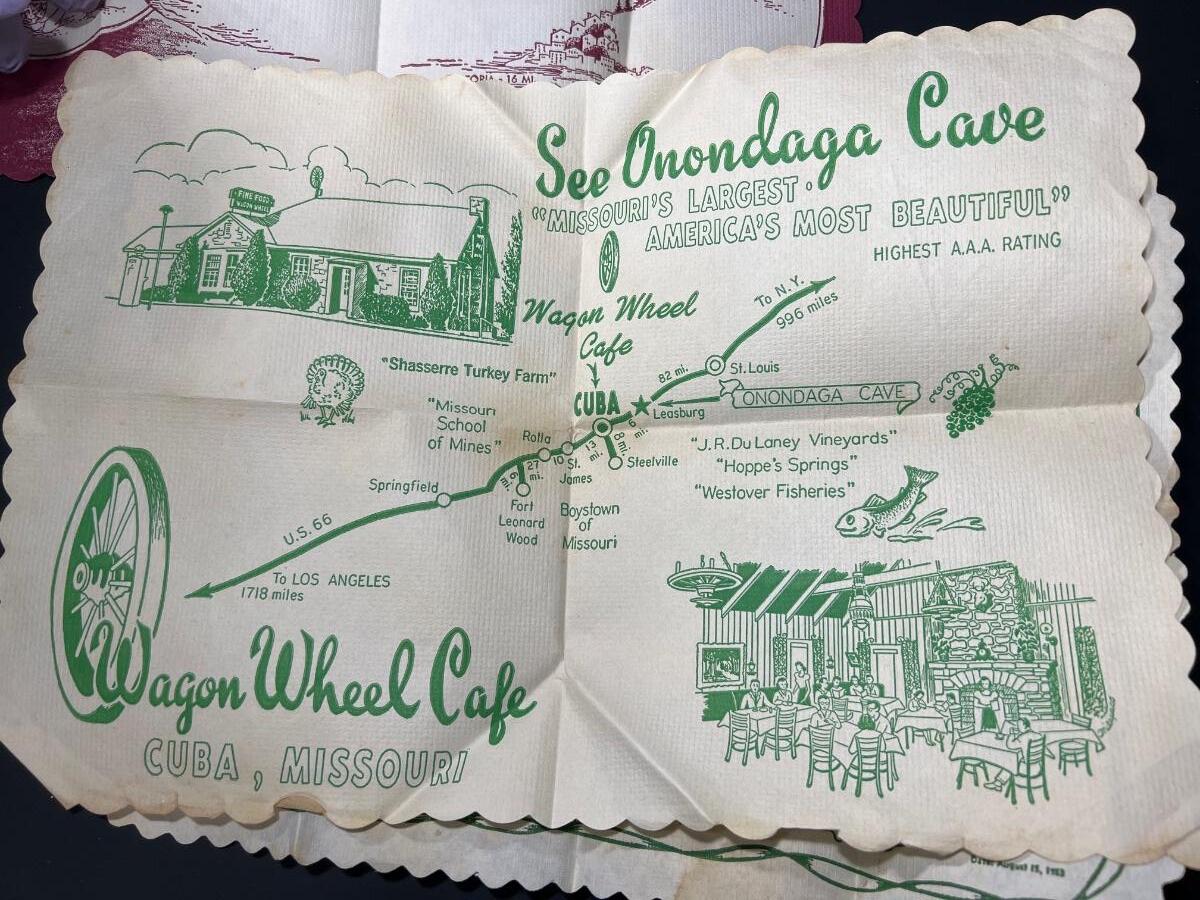 TORIA - 16 MI.
See Onondaga Cave
"MISSOURI'S LARGEST ·
AMERICA'S MOST BEAUTIFUL"
HIGHEST A.A.A. RATING
FINE FOOD
WAGON WHEEL
Wagon Wheel
Cafe
To N.Y.
996 miles
"Shasserre Turkey Farm"
82 mi.
St. Louis
CUBA
6 mi.
Leasburg
ONONDAGA CAVE
"Missouri
School
of Mines"
Rolla
10
St.
James
13 mi.
8 mi.
Steelville
"J.R.Du Laney Vineyards"
"Hoppe's Springs"
"Westover Fisheries"
Springfield
27 mi.
6 mi.
Fort
Leonard
Wood
Boystown
of
Missouri
U.S. 66
To LOS ANGELES
1718 miles
Wagon Wheel Cafe
CUBA, MISSOURI